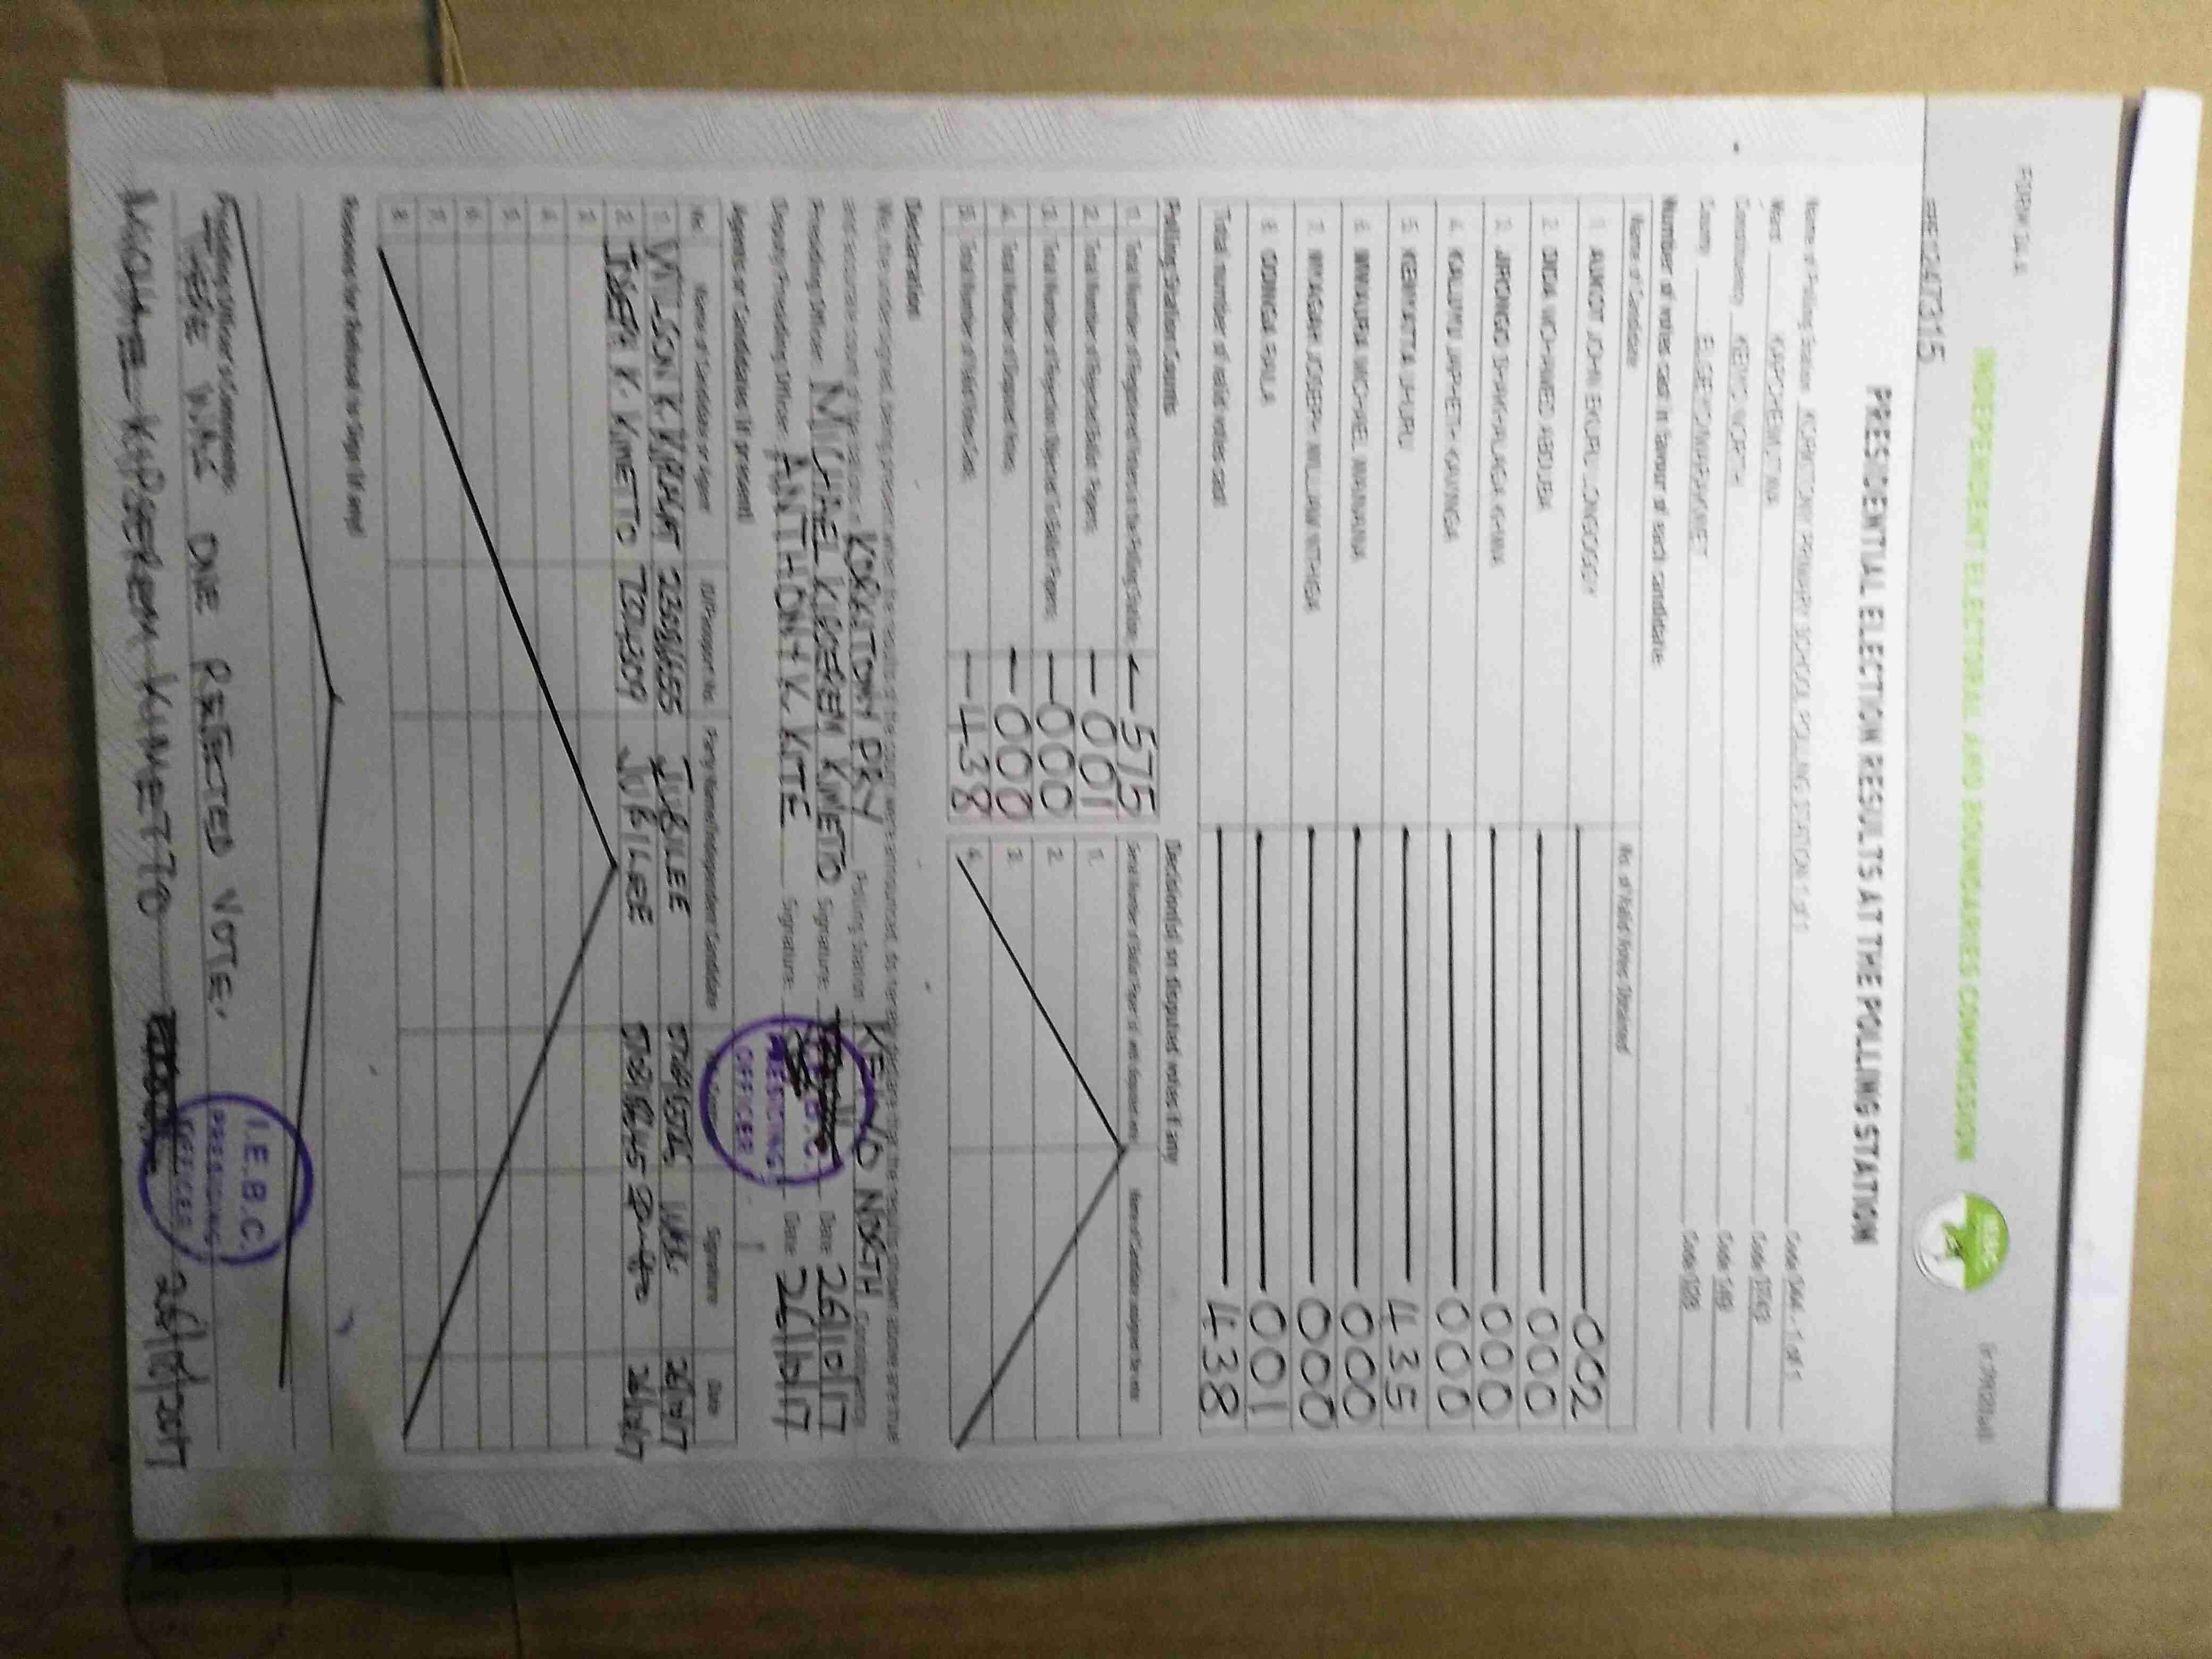 FORM 34 A
INDEPENDENT ELECTORAL AND BOUNDARIES COMMISSION
IEBC
PRESIDENTIAL ELECTION RESULTS AT THE POLLING STATION
Name of Polling Station PRIMARY SCHOOL POLLING STATION 1 of 1 Code 1 of 1
Ward KAPCHEMUTWA Code
Constituency KEIYO NORTH Code 149
County ELGEYO/MARAKWET Code 028
Number of votes cast in favour of each candidate:
Name of Candidate No. of Valid Votes Obtained
1. AUKOT JOHN EKURU LONGOGGY 002
2. DIDA MOHAMED ABDUBA 000
3. JIRONGO SHAKHALAGA KHWA 000
4. KALUYU JAPHETH KAVINGA 000
5. KENYATTA UHURU 435
6. MWAURA MICHAEL WAINAINA 000
7. NYAGAH JOSEPH WILLIAM NTHIGA 000
8. ODINGA RAILA 001
Total number of valid votes cast 438
Polling Station Counts
1. Total Number of Registered Voters in the Polling Station 575
2. Total Number of Rejected Ballot Papers 001
3. Total Number of Rejection Objected To Ballot Papers 000
4. Total Number of Disputed Votes 000
5. Total Number of Valid Votes Cast 438
Decision(s) on disputed votes if any
Serial Number of Ballot Paper of each disputed vote Name of Candidate assigned the vote
1.
2.
3.
4.
Declaration
We, the undersigned, being present when the results of the count were announced, do hereby declare that the results shown above are true
and accurate count of the ballots in PRY Polling Station KEIYO NORTH Constituency
Presiding Officer: MICHAEL KIPSEREM KIMETTO Signature: Date 26/10/17
Deputy Presiding Officer: ANTHONY K. KITE Signature: Date 26/10/17
I.E.B.C.
PRESIDING
OFFICER
Agents or Candidates (if present)
No. Name of Candidate or Agent ID/Passport No. Party Name/Independent Candidate Signature Date
1. WILSON K. JUBILEE 26/10/17
2. JOSEPH K. KIMETTO JUBILEE 26/10/17
3.
4.
5.
6.
7.
8.
Reasons for Refusal to Sign (if any)
Presiding Officer's Comments:
THERE WAS ONE REJECTED VOTE.
MICHAEL KIPSEREM KIMETTO 26/10/2017
I.E.B.C.
PRESIDING
OFFICER